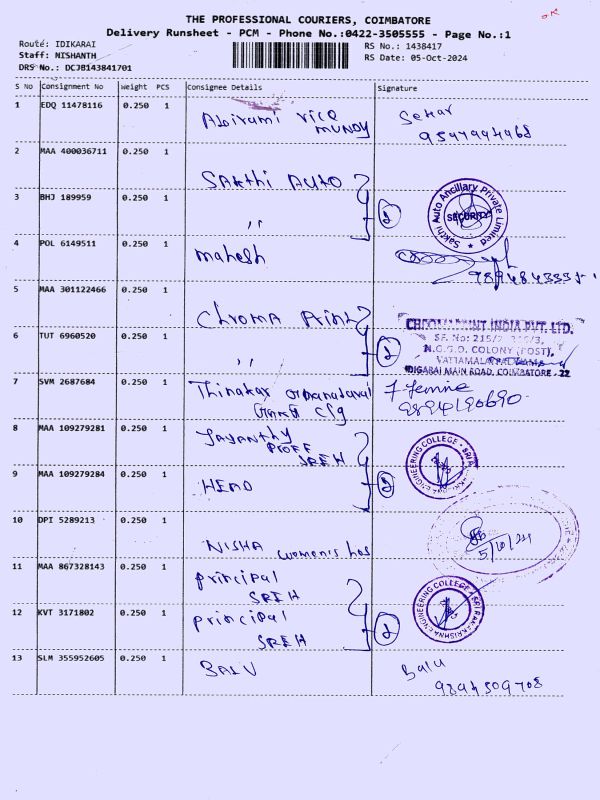 THE PROFESSIONAL COURIERS, COIMBATORE
Delivery Runsheet - PCM - Phone No.:0422-3505555 - Page No.:1
Route: IDIKARAI
Staff: NISHANTH
DRS No.: DCJB143841701
RS No.: 1438417
RS Date: 05-Oct-2024
S No Consignment No Weight PCS Consignee Details Signature
1 EDQ 11478116 0.250 1 Abirami rice
MUNDY
Sekar
2 MAA 400036711 0.250 1 SAKthi AUTO
3 BHJ 189959 0.250 1 " 2
Sakthi Auto Ancillary Private Limited
SECURITY
4 POL 6149511 0.250 1 mahesh
5 MAA 301122466 0.250 1 Chroma Print
6 TUT 6960520 0.250 1 " 2
PRINT INDIA PVT. LTD.
SF. No: 215/2,
N.G.G.O. COLONY (POST),
IDIGARAI MAIN ROAD, COIMBATORE - 22
7 SVM 2687684 0.250 1 Thinakar
8 MAA 109279281 0.250 1 Jayanthy
PROFF
SREH
9 MAA 109279284 0.250 1 HEAD 2
ENGINEERING COLLEGE
10 DPI 5289213 0.250 1 NISHA women's hos
5/10/24
11 MAA 867328143 0.250 1 principal
SREH
12 KVT 3171802 0.250 1 principal
SREH 2
ENGINEERING COLLEGE
13 SLM 355952605 0.250 1 BALU
Balu
9894509708